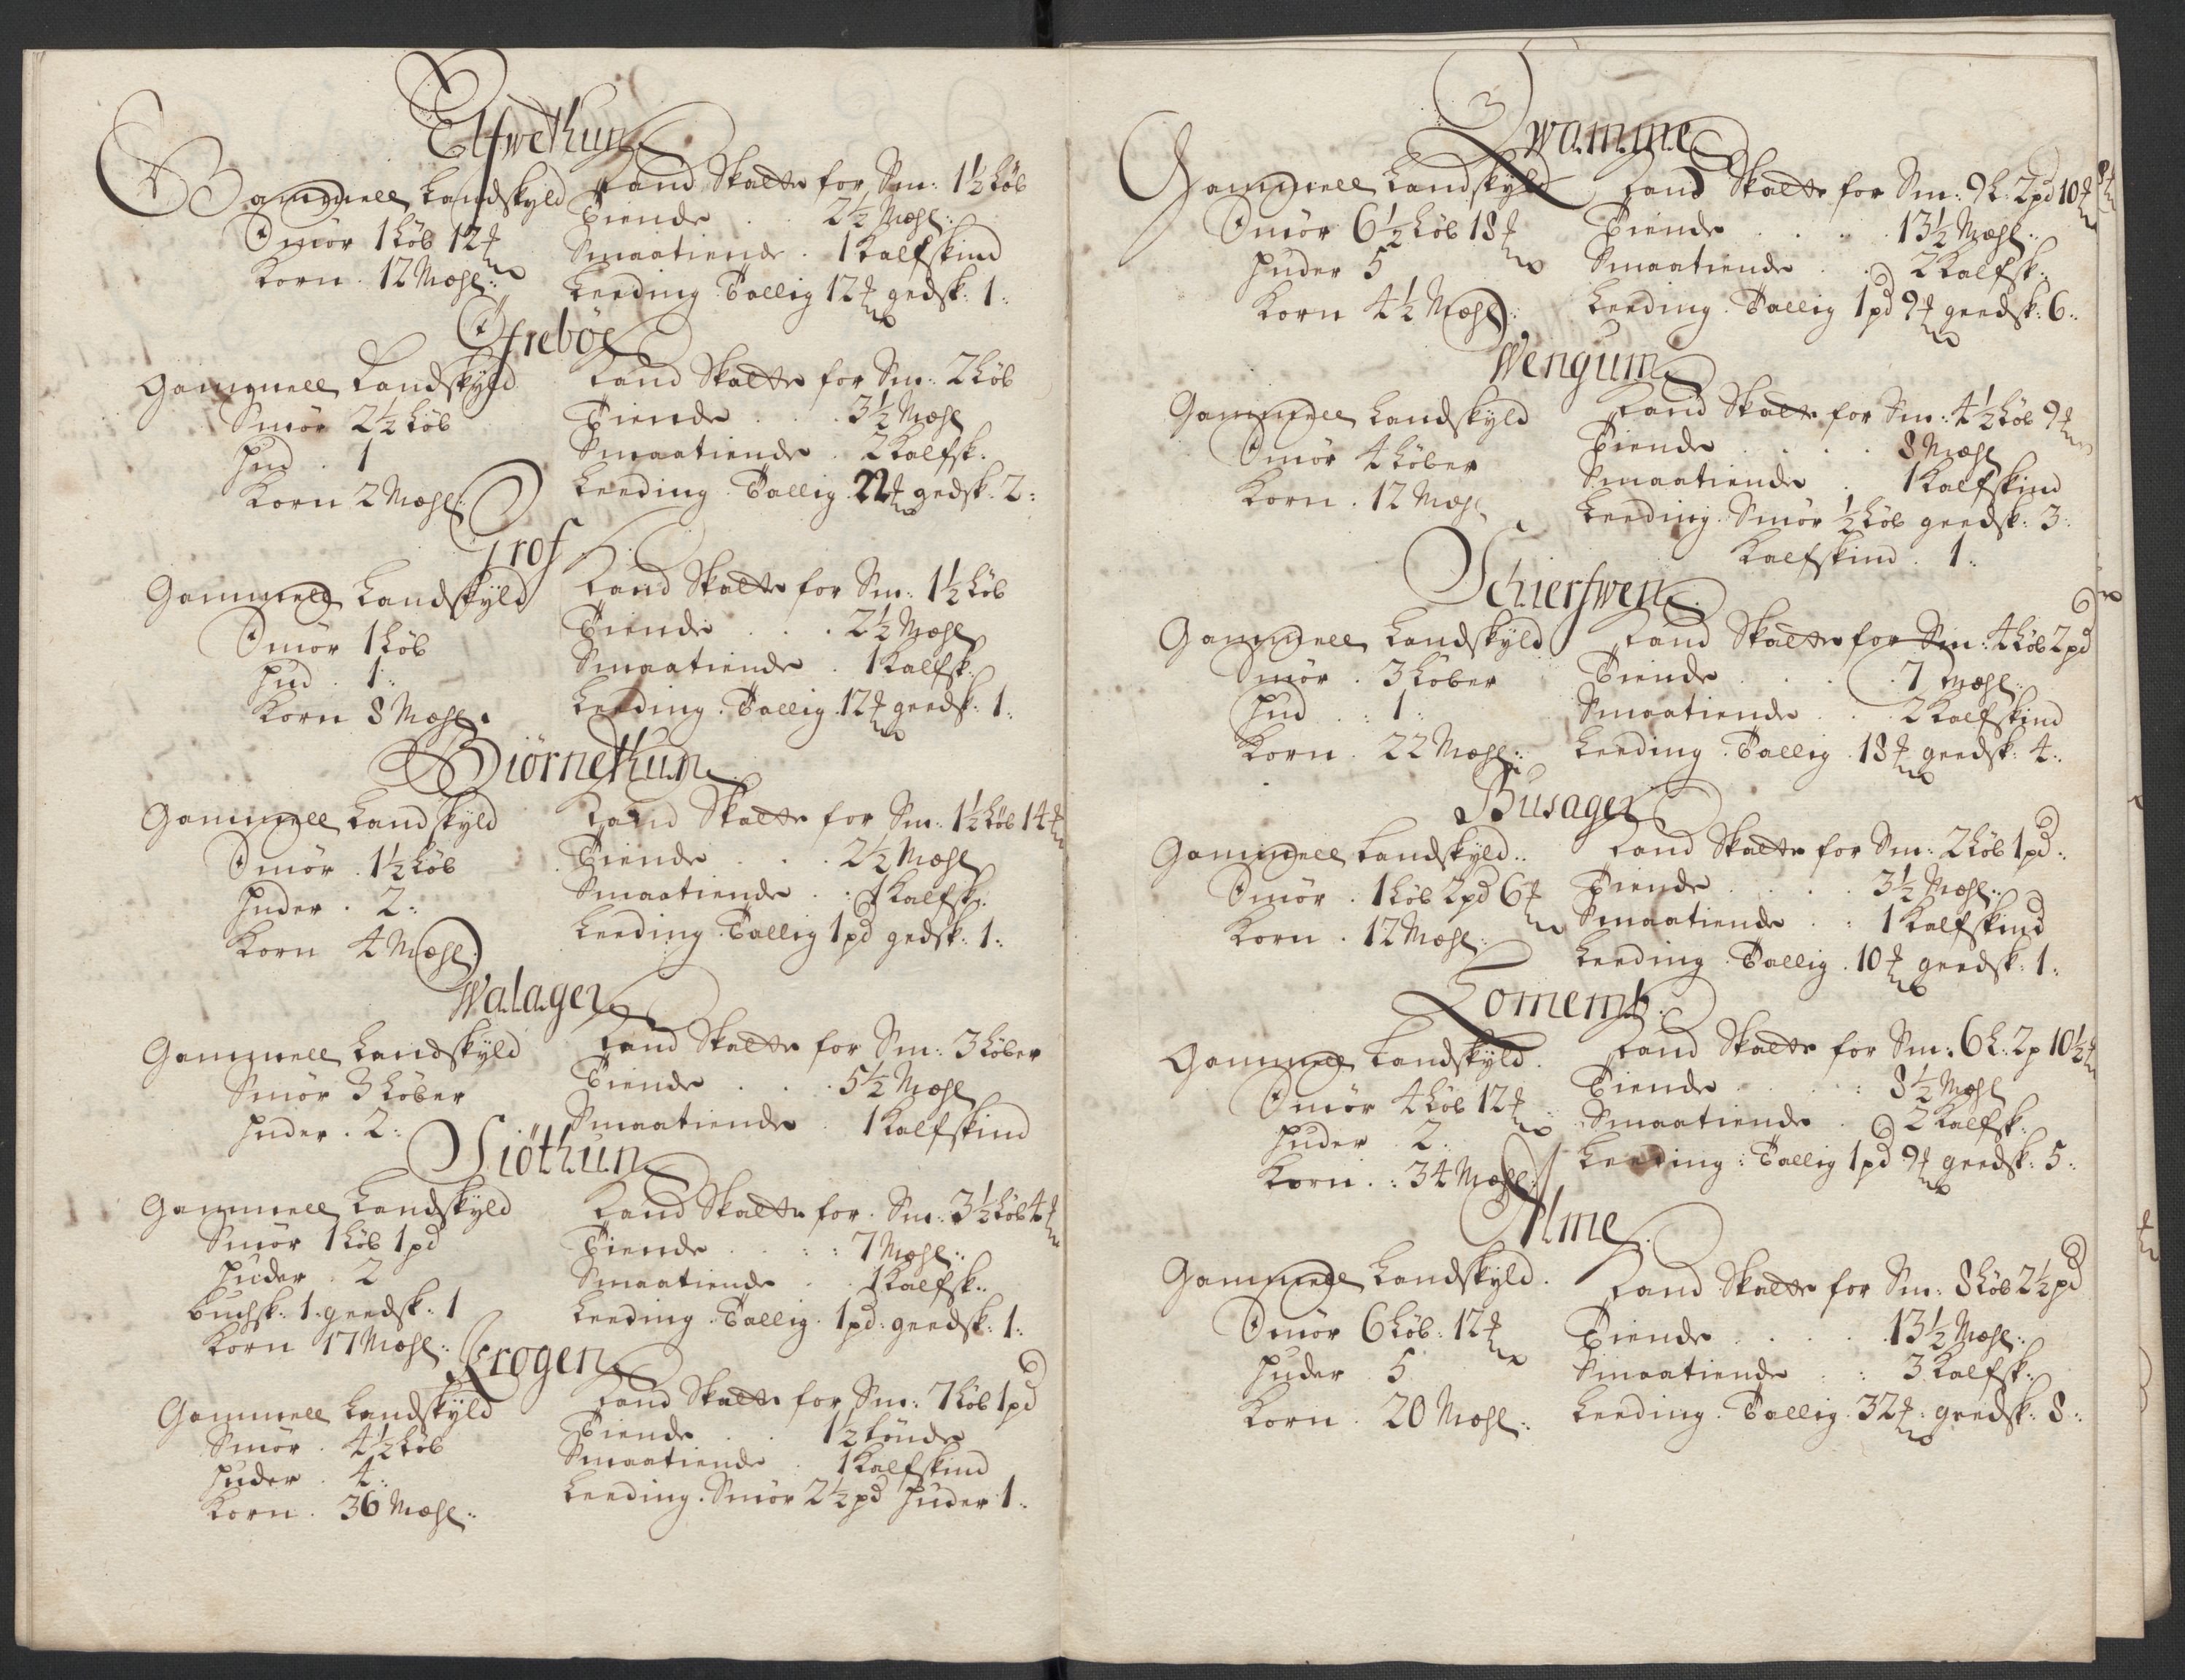 Elfwethun
Gammell Landskyld
Smör 1 Löb 12 ℔
Korn . 12 Mæhl:
Land Skatte for Sm: 1½ Löb
Tiende . . 2½ Mæhl:
Smaatiende . 1 Kalfskind
Leeding . Tallig 12 ℔ gedsk: 1:
Öfreböe
Gammell Landskyld
Smör 2½ Löb
Hud . 1
Korn 2 Mæhl:
Land Skatte for Sm: 2 Löb
Tiende . . . 3½ Mæhl
Smaatiende . 2 Kalfsk:
Leeding . Tallig . 22 ℔ gedsk: 2:
Grof
Gammell Landskyld
Smör 1 Löb
Hud . 1:
Korn 8 Mæhl.
Land Skatte for Sm: 1½ Löb
Tiende . . . 2½ Mæhl
Smaatiende . 1 Kalfsk:
Leeding . Tallig . 12 ℔ geedsk: 1:
Biörnethun
Gammell Landskyld
Smör . 1½ Löb
Huder . 2:
Korn 4 Mæhl
Land Skatte for Sm: 1½ Löb 14 ℔
Tiende . . . 2½ Mæhl
Smaatiende . : 1 Kalfsk:
Leeding . Tallig 1 pd gedsk: 1:
Walager
Gammell Landskyld
Smör 3 Löber
Huder . 2:
Land Skatte for Sm: 3 Löber
Tiende . . . 5½ Mæhl
Smaatiende . 1 Kalfskind
Siöthun
Gammell Landskyld
Smör 1 Löb 1 pd
Huder . 2
Buchsk: 1. geedsk: 1
Korn 17 Mæhl:
Land Skatte for . Sm: 3½ Löb 4 ℔
Tiende . . : : 7 Mæhl:
Smaatiende . . 1 Kalfsk:
Leeding . Tallig . 1 pd: geedsk: 1:
Krogen
Gammell Landskyld
Smör . 4½ Löb
Huder . 4:
Korn . 36 Mæhl:
Land Skatte for Sm: 7 Löb 1 pd
Tiende . . 1½ tönde
Smaatiende . 1 Kalfskind
Leeding . Smör 2½ pd Huder 1:
Qwamme
Gammell Landskyld
Smör 6½ Löb 18 ℔
Huder 5
Korn 4½ Mæhl:
Land Skatte for Sm: 9 L: 2 pd 10 ℔
Tiende . . . . 13½ Mæhl:
Smaatiende . . 2 Kalfsk:
Leeding . Tallig 1 pd 9 ℔ geedsk: 6:
Wengum
Gammell Landskyld
Smör 4 Löber
Korn . 12 Mæhl
Land Skatte for Sm: 4½ Löb 9 ℔
Tiende . . . . 8 Mæhl
Smaatiende . 1 Kalfskind
Leeding . Smör ½ Löb geedsk: 3:
Kalfskind . 1:
Schierfwen
Gammell Landskyld
Smör . 3 Löber
Hud . : 1:
Korn . 22 Mæhl:
Land Skatte for Sm: 4 Löb 2 pd
Tiende . . . . 7 Mæhl:
Smaatiende . . 2 Kalfskind
Leeding . Tallig . 18 ℔ geedsk: 4:
Busager
Gammell Landskyld:
Smör . 1 Löb 2 pd 6 ℔
Korn . 12 Mæhl:
Land Skatte for Sm: 2 Löb 1 pd:
Tiende . . . . 3½ Mæhl:
Smaatiende . : 1 Kalfskind
Leeding . Tallig . 10 ℔ geedsk: 1:
Lomemb.
Gammell Landskyld.
Smör 4 Löb 12 ℔
Huder . 2.
Korn . : 34 Mæhl:
Land Skatte for Sm: 6 L: 2 p 10½ ℔
Tiende . . . : 8½ Mæhl
Smaatiende . 2 Kalfsk:
Leeding : Tallig 1 pd 9 ℔ geedsk: 5:
Alme
Gammell Landskyld.
Smör 6 Löb: 12 ℔
Huder . 5
Korn . 20 Mæhl:
Land Skatte for Sm: 8 Löb 2½ pd
Tiende . . . . 13½ Mæhl:
Smaatiende . : 3 Kalfsk:
Leeding . Tallig . 32 ℔: geedsk: 8: